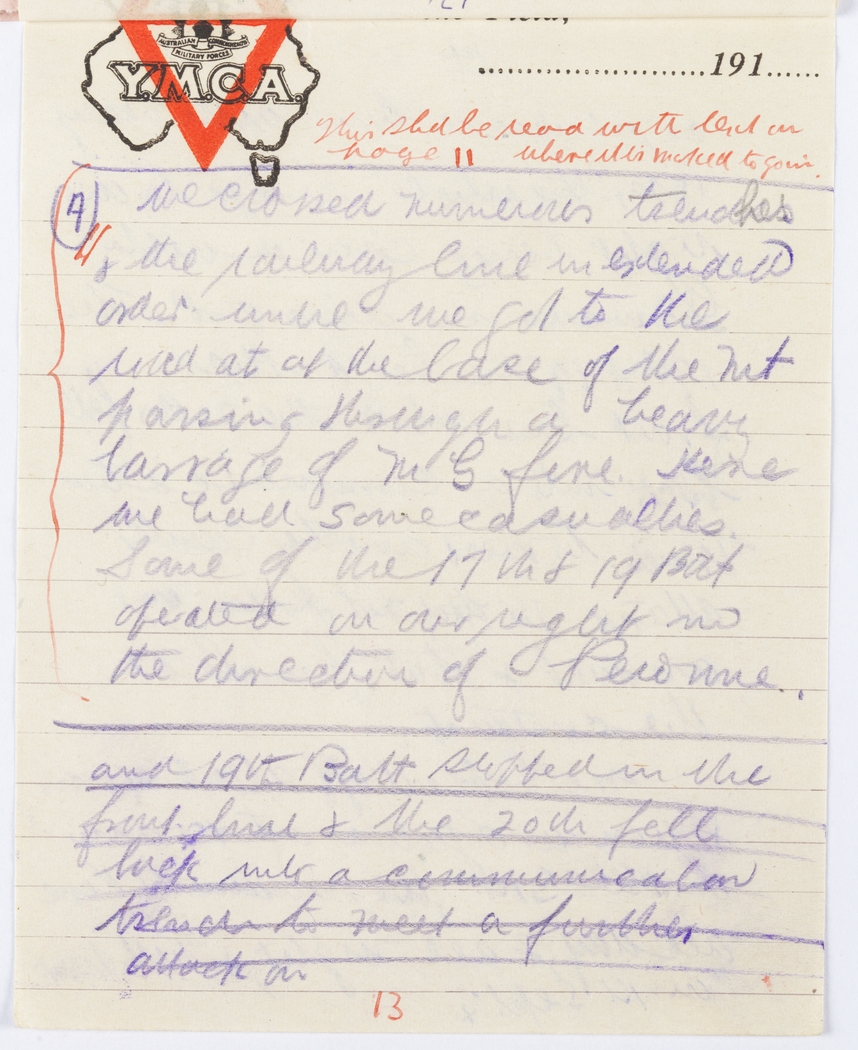 AUSTRALIAN COMMONWEALTH
MILITARY FORCES
Y.M.C.A.
191
This shd be read with text on
page 11 where it is marked to go in.
A we crossed numerous trenches
& the railway line in extended
order until we got to the
road at at the base of the Mt
passing through a heavy
barrage of M G fire. Here
we had some casualties.
Some of the 17th & 19 Batt
operated on our right in
the direction of Peronne.
and 19th Batt stepped in the
front line & the 20th fell
back into a communication
trench to meet a further
attack on
13